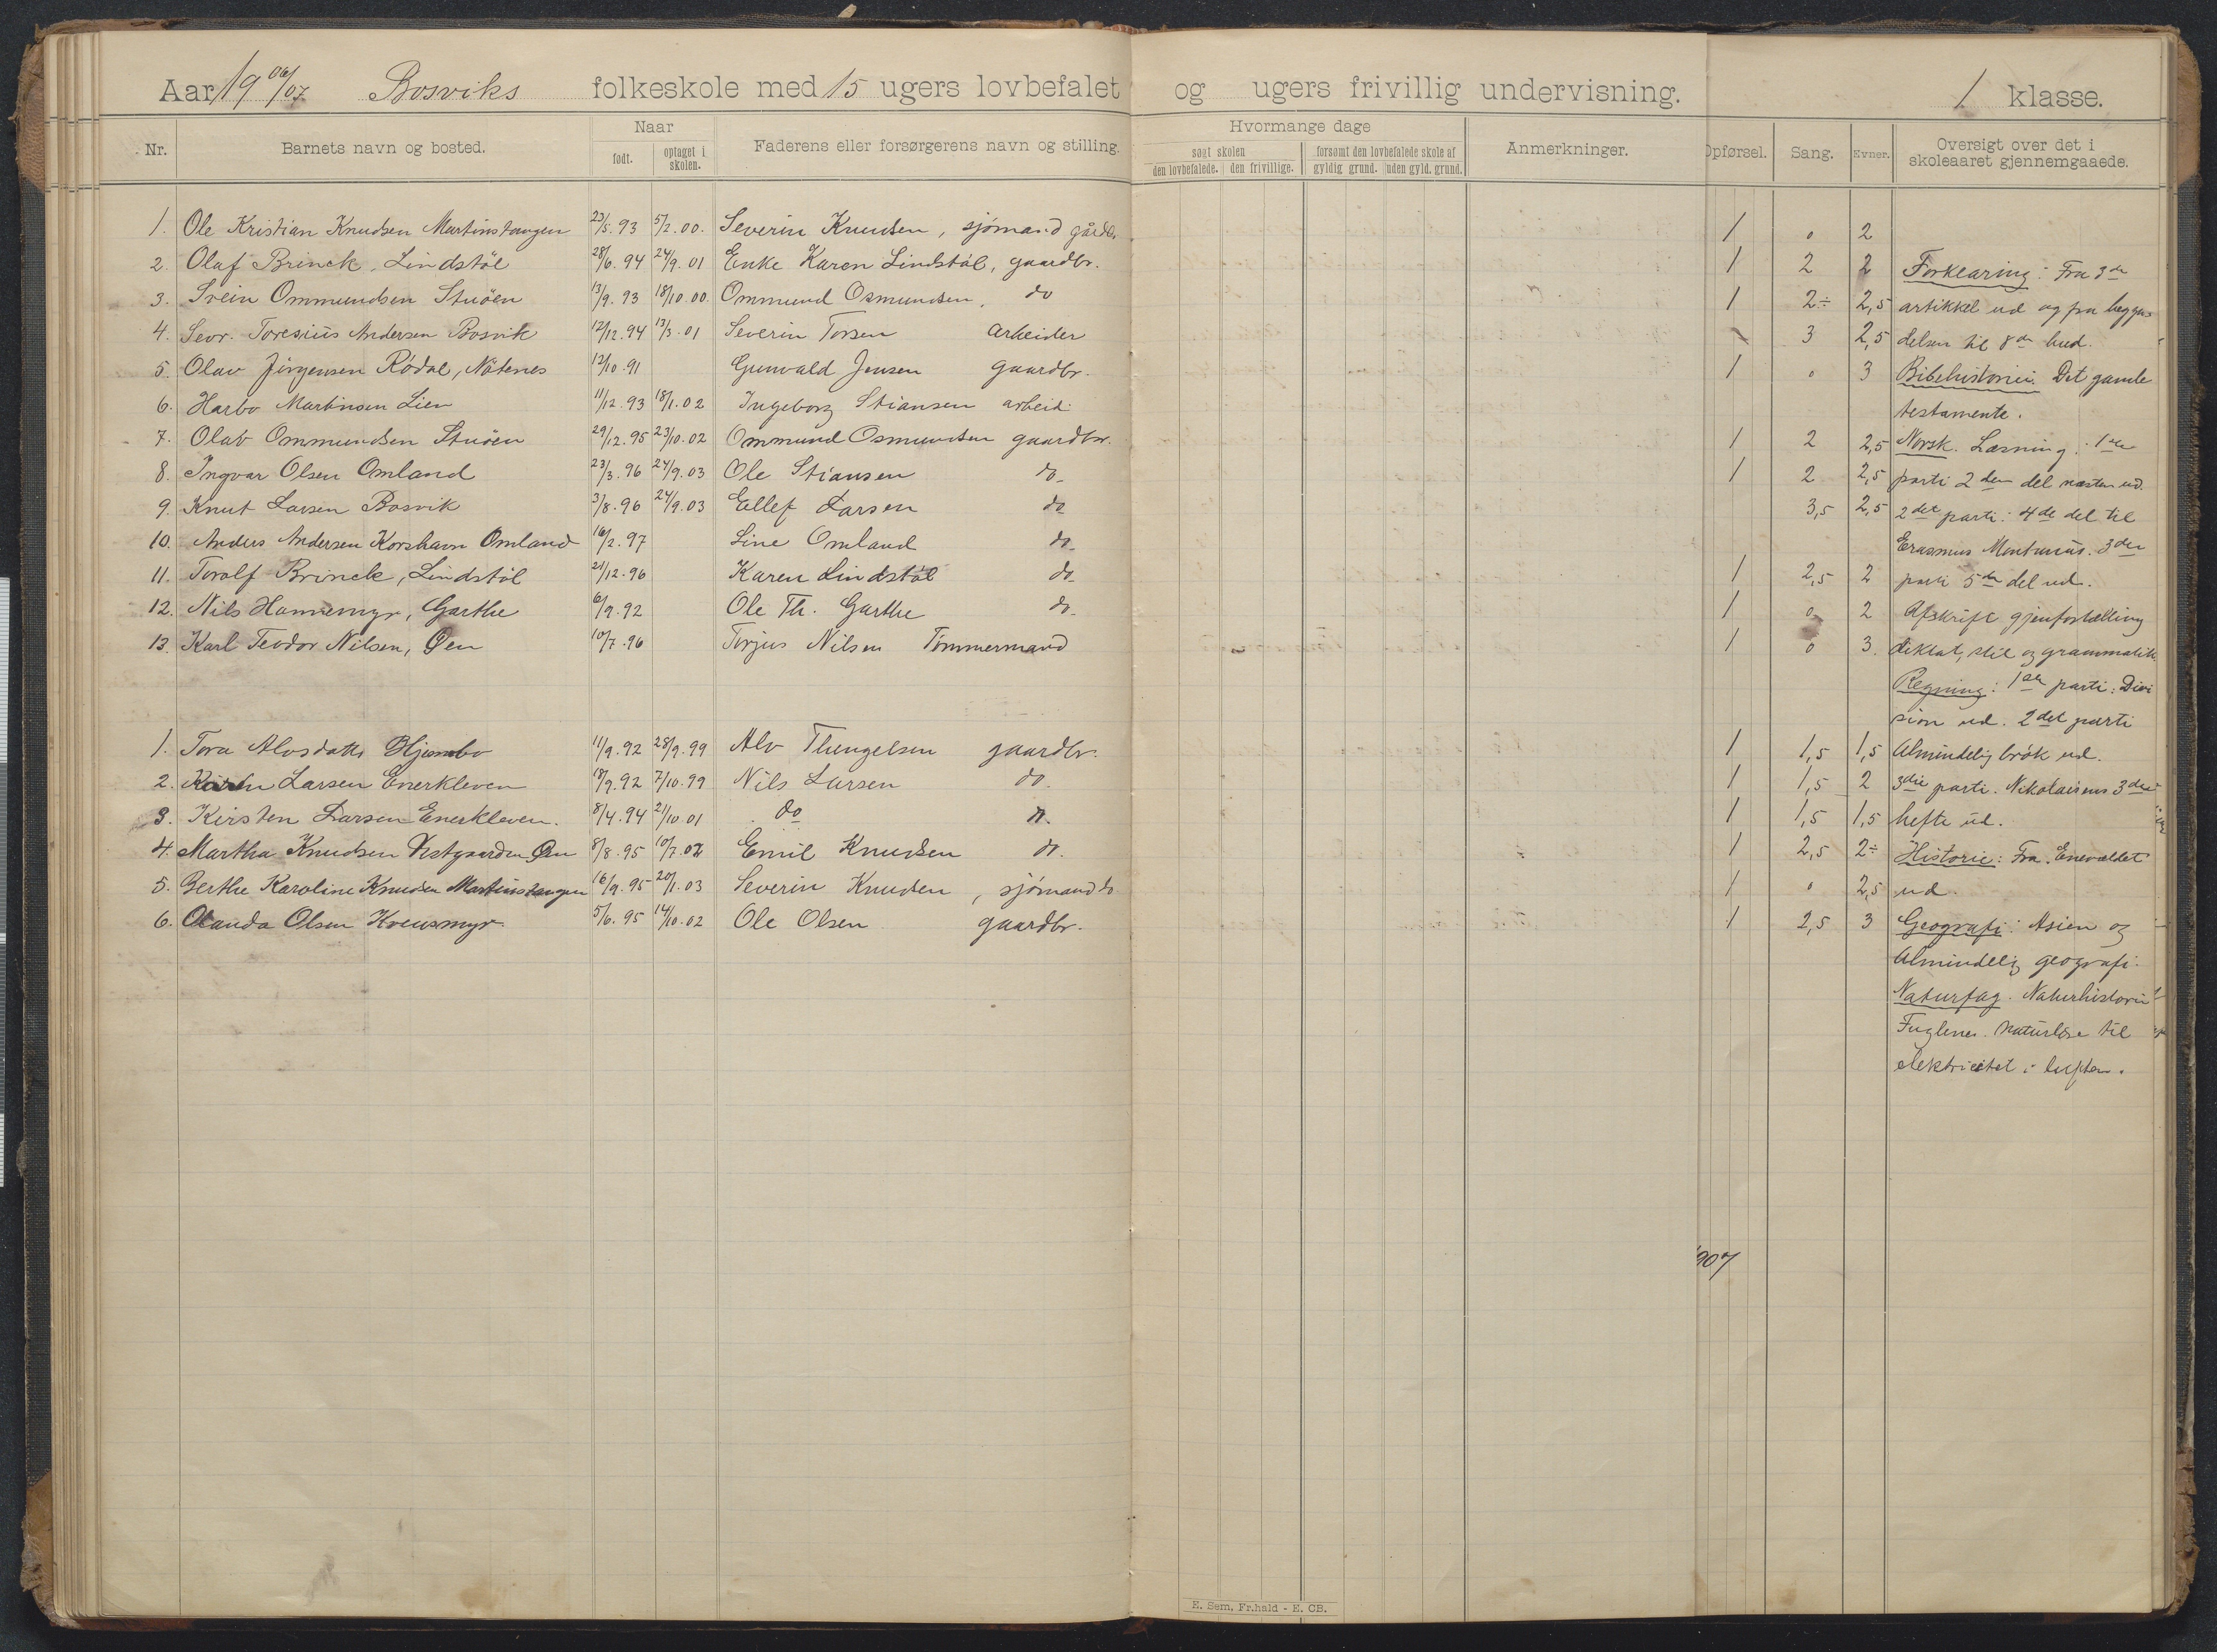 Aar 19 06/07 Bosviks folkeskole med 15 ugers lovbefalet og ugers frivillig undervisning. 1 klasse.
Nr. Barnets navn og bosted. Naar født. optaget i skolen. Faderens eller forsørgerens navn og stilling.
Hvormange dage søgt skolen den lovbefalede. den frivillige. forsømt den lovbefalede skole af gyldig grund. uden gyld. grund. Anmerkninger.
Opførsel. Sang. Evner. Oversigt over det i skoleaaret gjennemgaaede.
1. Ole Kristian Knudsen Martinstangen 23/5.93 5/2.00. Severin Knudsen, sjømand gårdbr. 1 0 2
2. Olaf Brinck, Lindstøl 28/6.94 24/9.01 Enke Karen Lindstøl, gaardbr. 1 2 2 Forklaring: Fra 3de
3. Svein Ommundsen Stuøen 13/9.93 18/10.00. Ommund Osmundsen, do 1 2÷ 2,5 artikkel ud og fra begyn
4. Sevr. Toresius Andersen Bosvik 12/12.94 13/3.01 Severin Torsen arbeider 3 2,5 delsen til 8de bud.
5. Olav Jørgensen Rødal, Nøtenes 12/10.91 Gunvald Jensen gaardbr. 1 0 3 Bibelhistorie. Det gamle
6. Harbo Martinsen Lien 11/12.93 18/1.02 Ingeborg Stiansen arbeid. testamente.
7. Olav Ommundsen Stuøen 29/12.95 23/10.02 Ommund Osmundsen gaardbr. 1 2 2,5 Norsk. Læsning: 1ste
8. Ingvar Olsen Omland 23/3.96 24/9.03 Ole Stiansen do 1 2 2,5 parti 2den del næsten ud.
9. Knut Larsen Bosvik 3/8.96 24/9.03 Ellef Larsen do 3,5 2,5 2det parti: 4de del til
10. Anders Andersen Korshavn Omland 16/2.97 Line Omland do Erasmus Montanus. 3die
11. Torolf Brinck, Lindstøl 21/12.96 Karen Lindstøl do 1 2,5 2 parti 5te del ud.
12. Nils Hannemyr, Garthe 6/9.92 Ole Th. Garthe do 1 0 2 Afskrift gjenfortælling
13. Karl Teodor Nilsen, Øen 10/7.96 Torjus Nilsen Tømmermand 1 0 3. diktat, stil og grammatik.
Regning: 1ste parti: Divi
sion ud. 2det parti
1. Tora Alvsdatter 11/9.92 28/9.99 Alv Thengelsen gaardbr. 1 1,5 1,5 Almindelig brøk ud.
2. Karen Larsen Enerkleven 18/9.92 7/10.99 Nils Larsen do. 1 1,5 2 3die parti. Nikolaisens 3die
3. Kirsten Larsen Enerkleven. 8/4.94 2/10.01 do do. 1 1,5 1,5 hefte ud.
4. Martha Knudsen Vestgaarden Øen 8/8.95 10/7.02 Emil Knudsen do. 1 2,5 2÷ Historie: Fra Enevældet
5. Berthe Karoline Knudsen Martinstangen 16/9.95 20/1.03 Severin Knudsen, sjømand do 1 0 2,5 ud.
6. Olanda Olsen 5/6.95 14/10.02 Ole Olsen gaardbr. 1 2,5 3 Geografi: Asien og
Almindelig geografi.
Naturfag. Naturhistorie
Fuglene. Naturlære til
elektricitet i luften.
907
E. Sem, Fr.hald - E. CB.